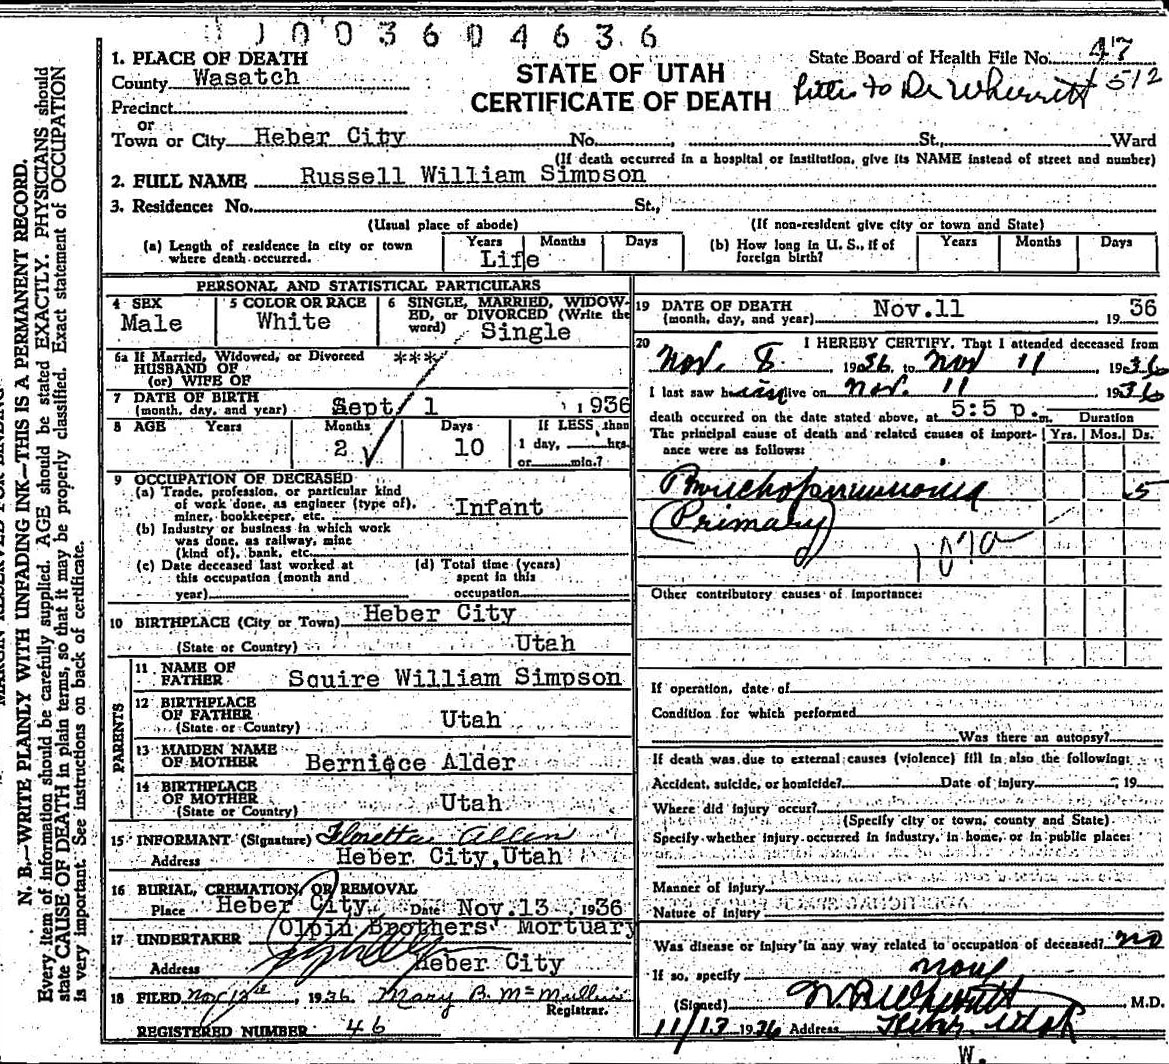 1003604636
1. PLACE OF DEATH
County Wasatch
STATE OF UTAH
CERTIFICATE OF DEATH
State Board of Health File No. 47
512
Precinct
or
Town or City Heber City No. St., Ward
(If death occurred in a hospital or institution, give its NAME instead of street and number)
2. FULL NAME Russell William Simpson
3. Residence: No. St.,
(Usual place of abode) (If non-resident give city or town and State)
(a) Length of residence in city or town where death occurred. Years Months Days
Life
(b) How long in U. S., if of foreign birth? Years Months Days
PERSONAL AND STATISTICAL PARTICULARS
4 SEX
Male
5 COLOR OR RACE
White
6 SINGLE, MARRIED, WIDOW-
ED, or DIVORCED (Write the
word) Single
6a If Married, Widowed, or Divorced ***
HUSBAND OF
(or) WIFE OF
7 DATE OF BIRTH
(month, day, and year) Sept. 1 1936
8 AGE Years Months Days If LESS than
2 10 1 day, hrs.
or min.?
9 OCCUPATION OF DECEASED
(a) Trade, profession, or particular kind
of work done, as engineer (type of),
miner, bookkeeper, etc. Infant
(b) Industry or business in which work
was done, as railway, mine
(kind of), bank, etc.
(c) Date deceased last worked at
this occupation (month and
year)
(d) Total time (years)
spent in this
occupation
10 BIRTHPLACE (City or Town) Heber City
(State or Country) Utah
PARENTS
11 NAME OF
FATHER Squire William Simpson
12 BIRTHPLACE
OF FATHER
(State or Country) Utah
13 MAIDEN NAME
OF MOTHER Berniece Alder
14 BIRTHPLACE
OF MOTHER
(State or Country) Utah
15 INFORMANT (Signature) Floretta Allen
Address Heber City, Utah
16 BURIAL, CREMATION, OR REMOVAL
Place Heber City Date Nov. 13 1936
Olpin Brothers Mortuary
17 UNDERTAKER
Address Heber City
18 FILED Nov 12th, 1936 Mary B. McMullin
Registrar.
REGISTERED NUMBER 46
19 DATE OF DEATH
(month, day, and year) Nov. 11 19 36
20 I HEREBY CERTIFY, That I attended deceased from
Nov. 8, 1936 to Nov 11 1936
I last saw h im alive on Nov. 11 1936
death occurred on the date stated above, at 5:5 p.m.
The principal cause of death and related causes of import-
ance were as follows:
Duration
Yrs. Mos. Ds.
Bronchopneumonia 5
(Primary)
107a
Other contributory causes of importance:
If operation, date of
Condition for which performed
Was there an autopsy?
If death was due to external causes (violence) fill in also the following:
Accident, suicide, or homicide? Date of injury , 19
Where did injury occur?
(Specify city or town, county and State)
Specify whether injury occurred in industry, in home, or in public place:
Manner of injury
Nature of injury
Was disease or injury in any way related to occupation of deceased? no
If so, specify none
(Signed) M.D.
11/13 1936 Address Heber Utah
W.
N. B.—WRITE PLAINLY WITH UNFADING INK—THIS IS A PERMANENT RECORD.
Every item of information should be carefully supplied. AGE should be stated EXACTLY. PHYSICIANS should
state CAUSE OF DEATH in plain terms, so that it may be properly classified. Exact statement of OCCUPATION
is very important. See instructions on back of certificate.